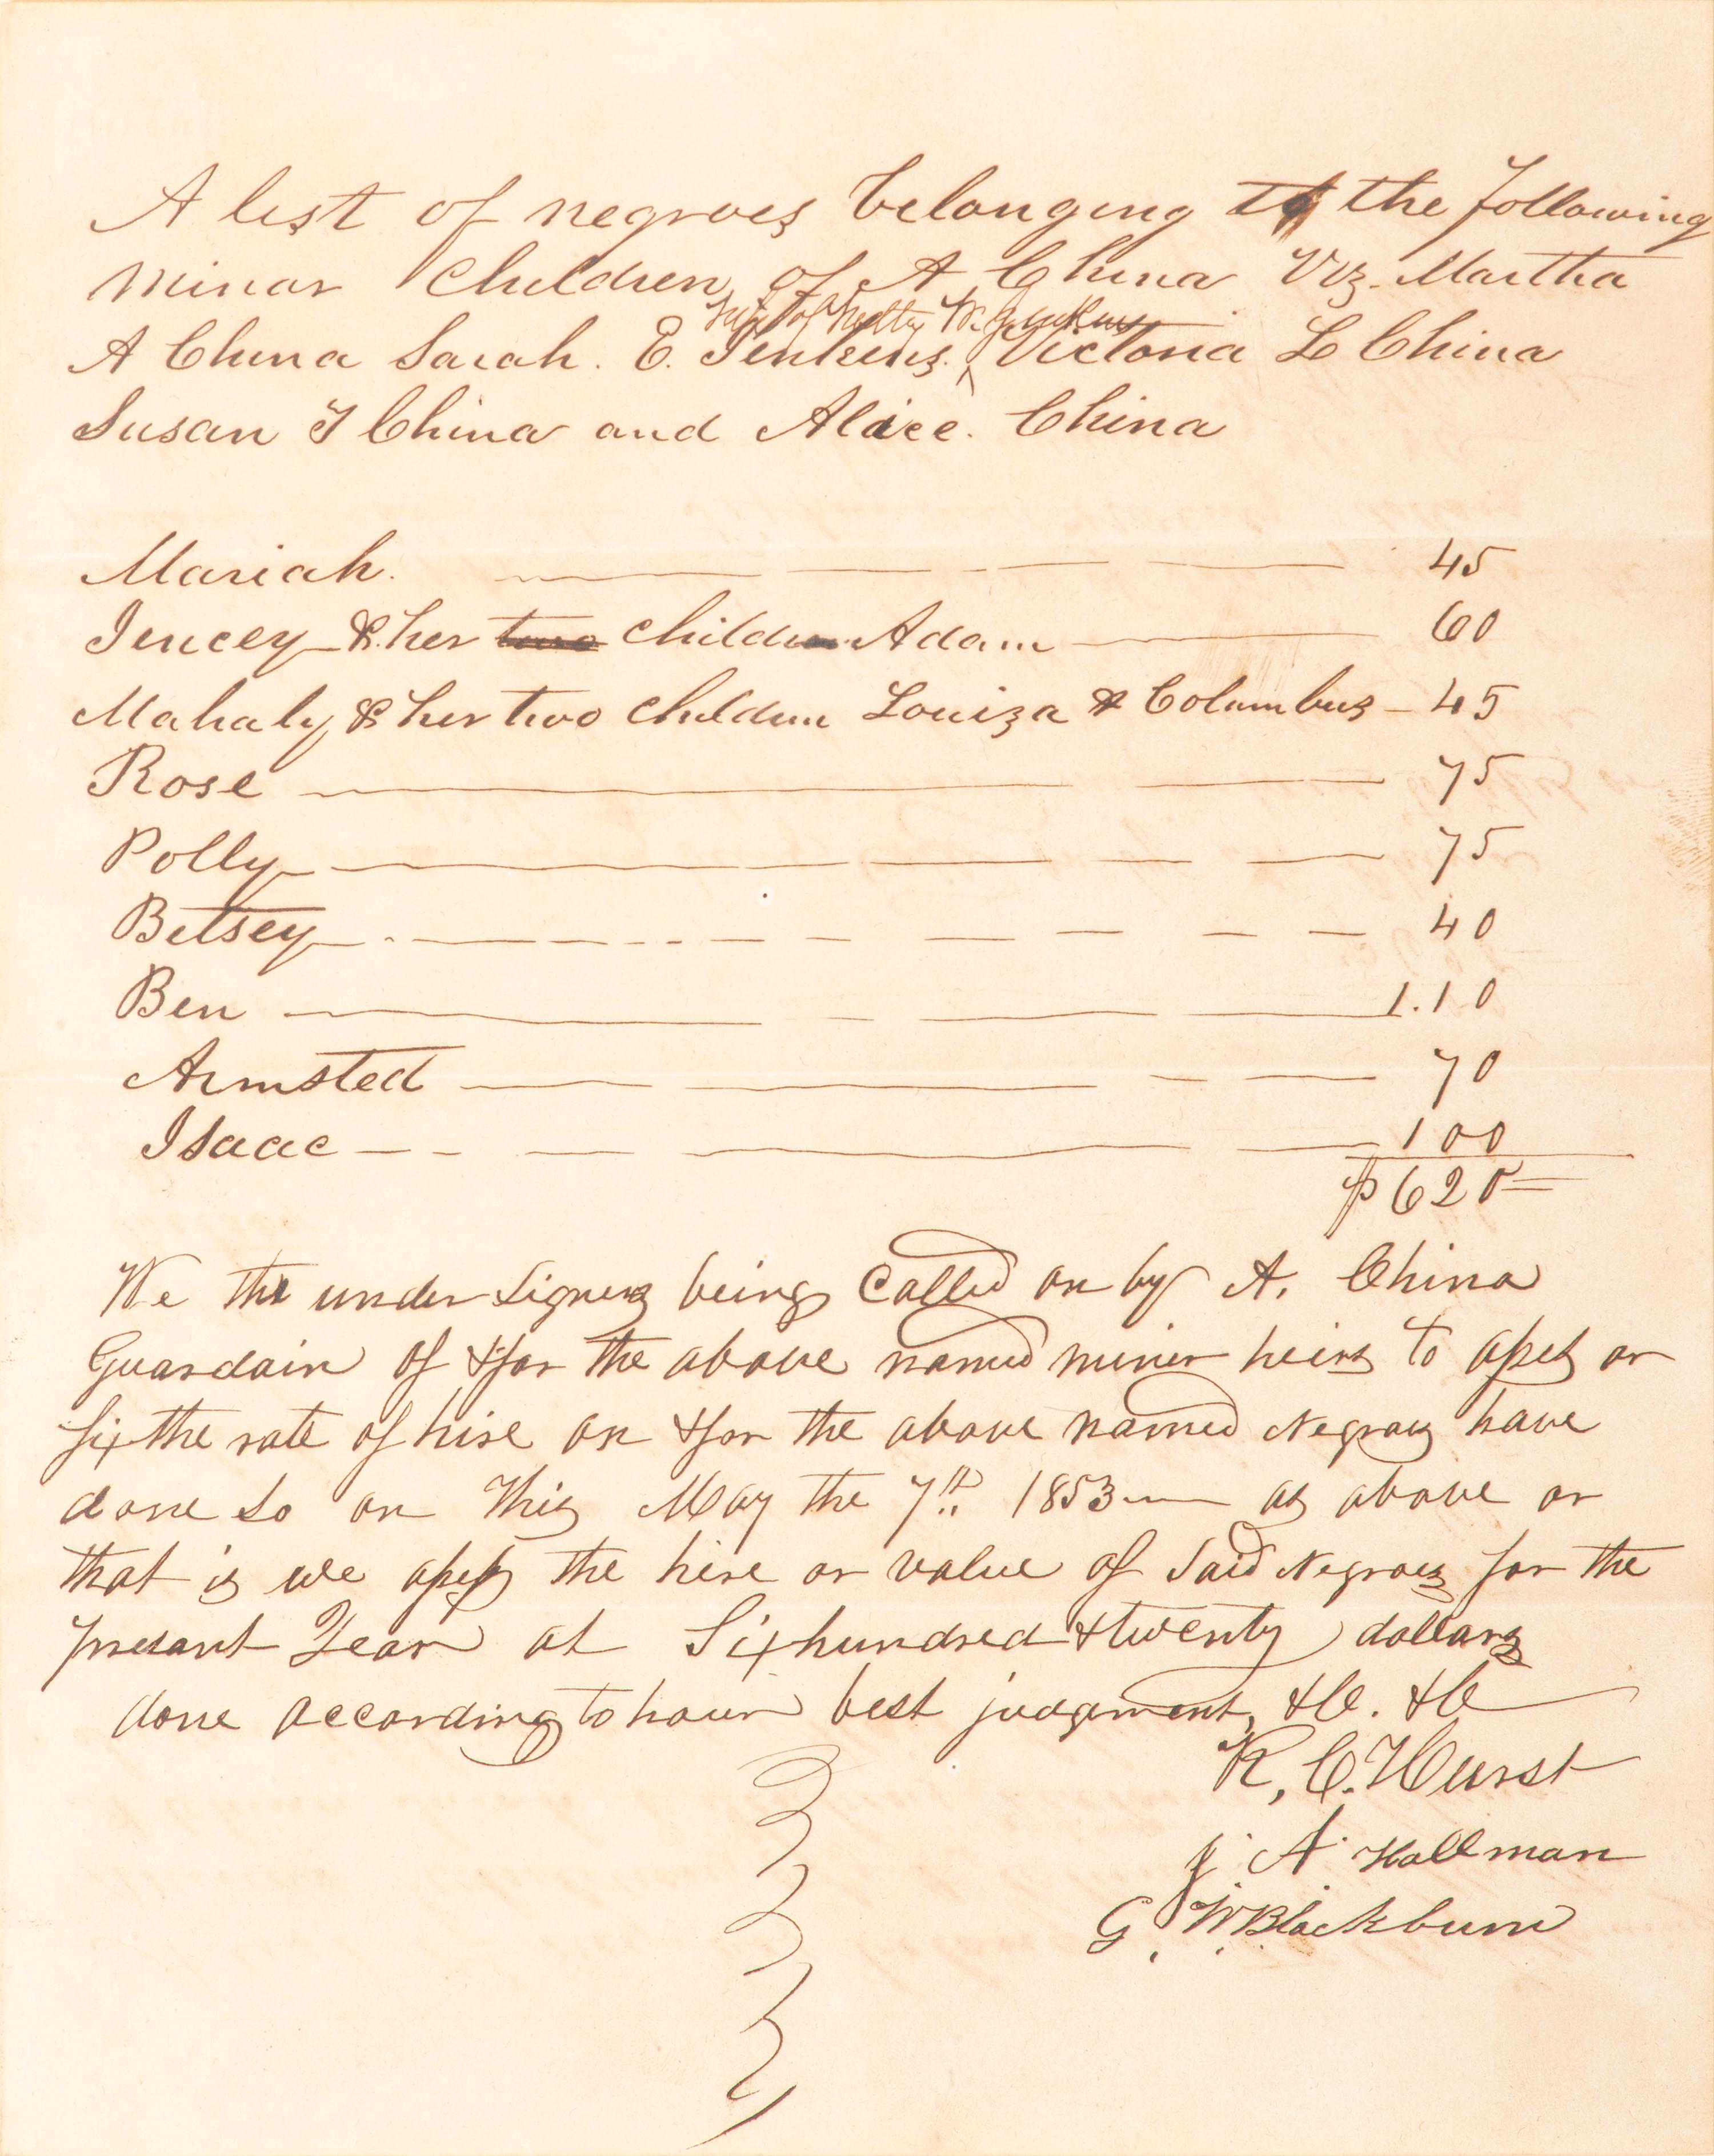 A list of negroes belonging to the following
minor Children of A China Viz. Martha
Wife of W. Jenkins
A China Sarah. E. Jenkins. Victoria L China
Susan I China and Alice. China
Mariah. 45
Jencey & her two Children Adam 60
Mahaly & her two Children Louiza & Columbus 45
Rose 75
Polly 75
Betsey 40
Ben 1.10
Armsted 70
Isaac 100
$620
We the under Signers being Called on by A. China
Guardain of & for the above named miner heirs to asses or
fix the rate of hire on & for the above named Negroes have
done so on this May the 7th 1853 as above or
that is we assess the hire or value of Said Negroes for the
presant Year at Six hundred & twenty dollars
done according to hour best judgement, &C. &C
R, C. Hurst
J. A. Hallman
G. W Blackburn